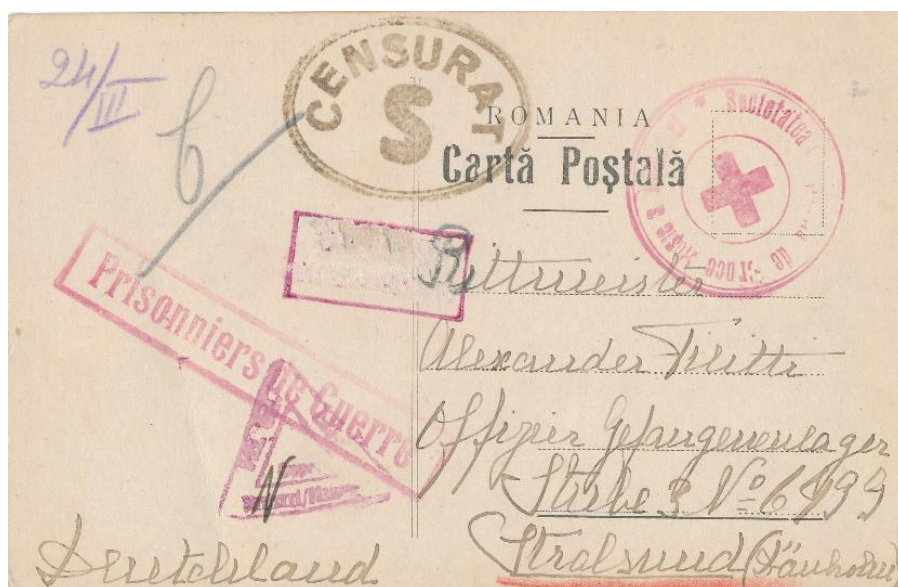 24/III
6
CENSURAT
S
ROMANIA
Cartă Poştală
Societatea
de Cruce Rosie
Prisonniers de Guerre
Rittmeister
Alexander Filitti
Offizier Gefangenenlager
Stube 3 No 6199
Stralsund (Dänholm)
Deutchland
N